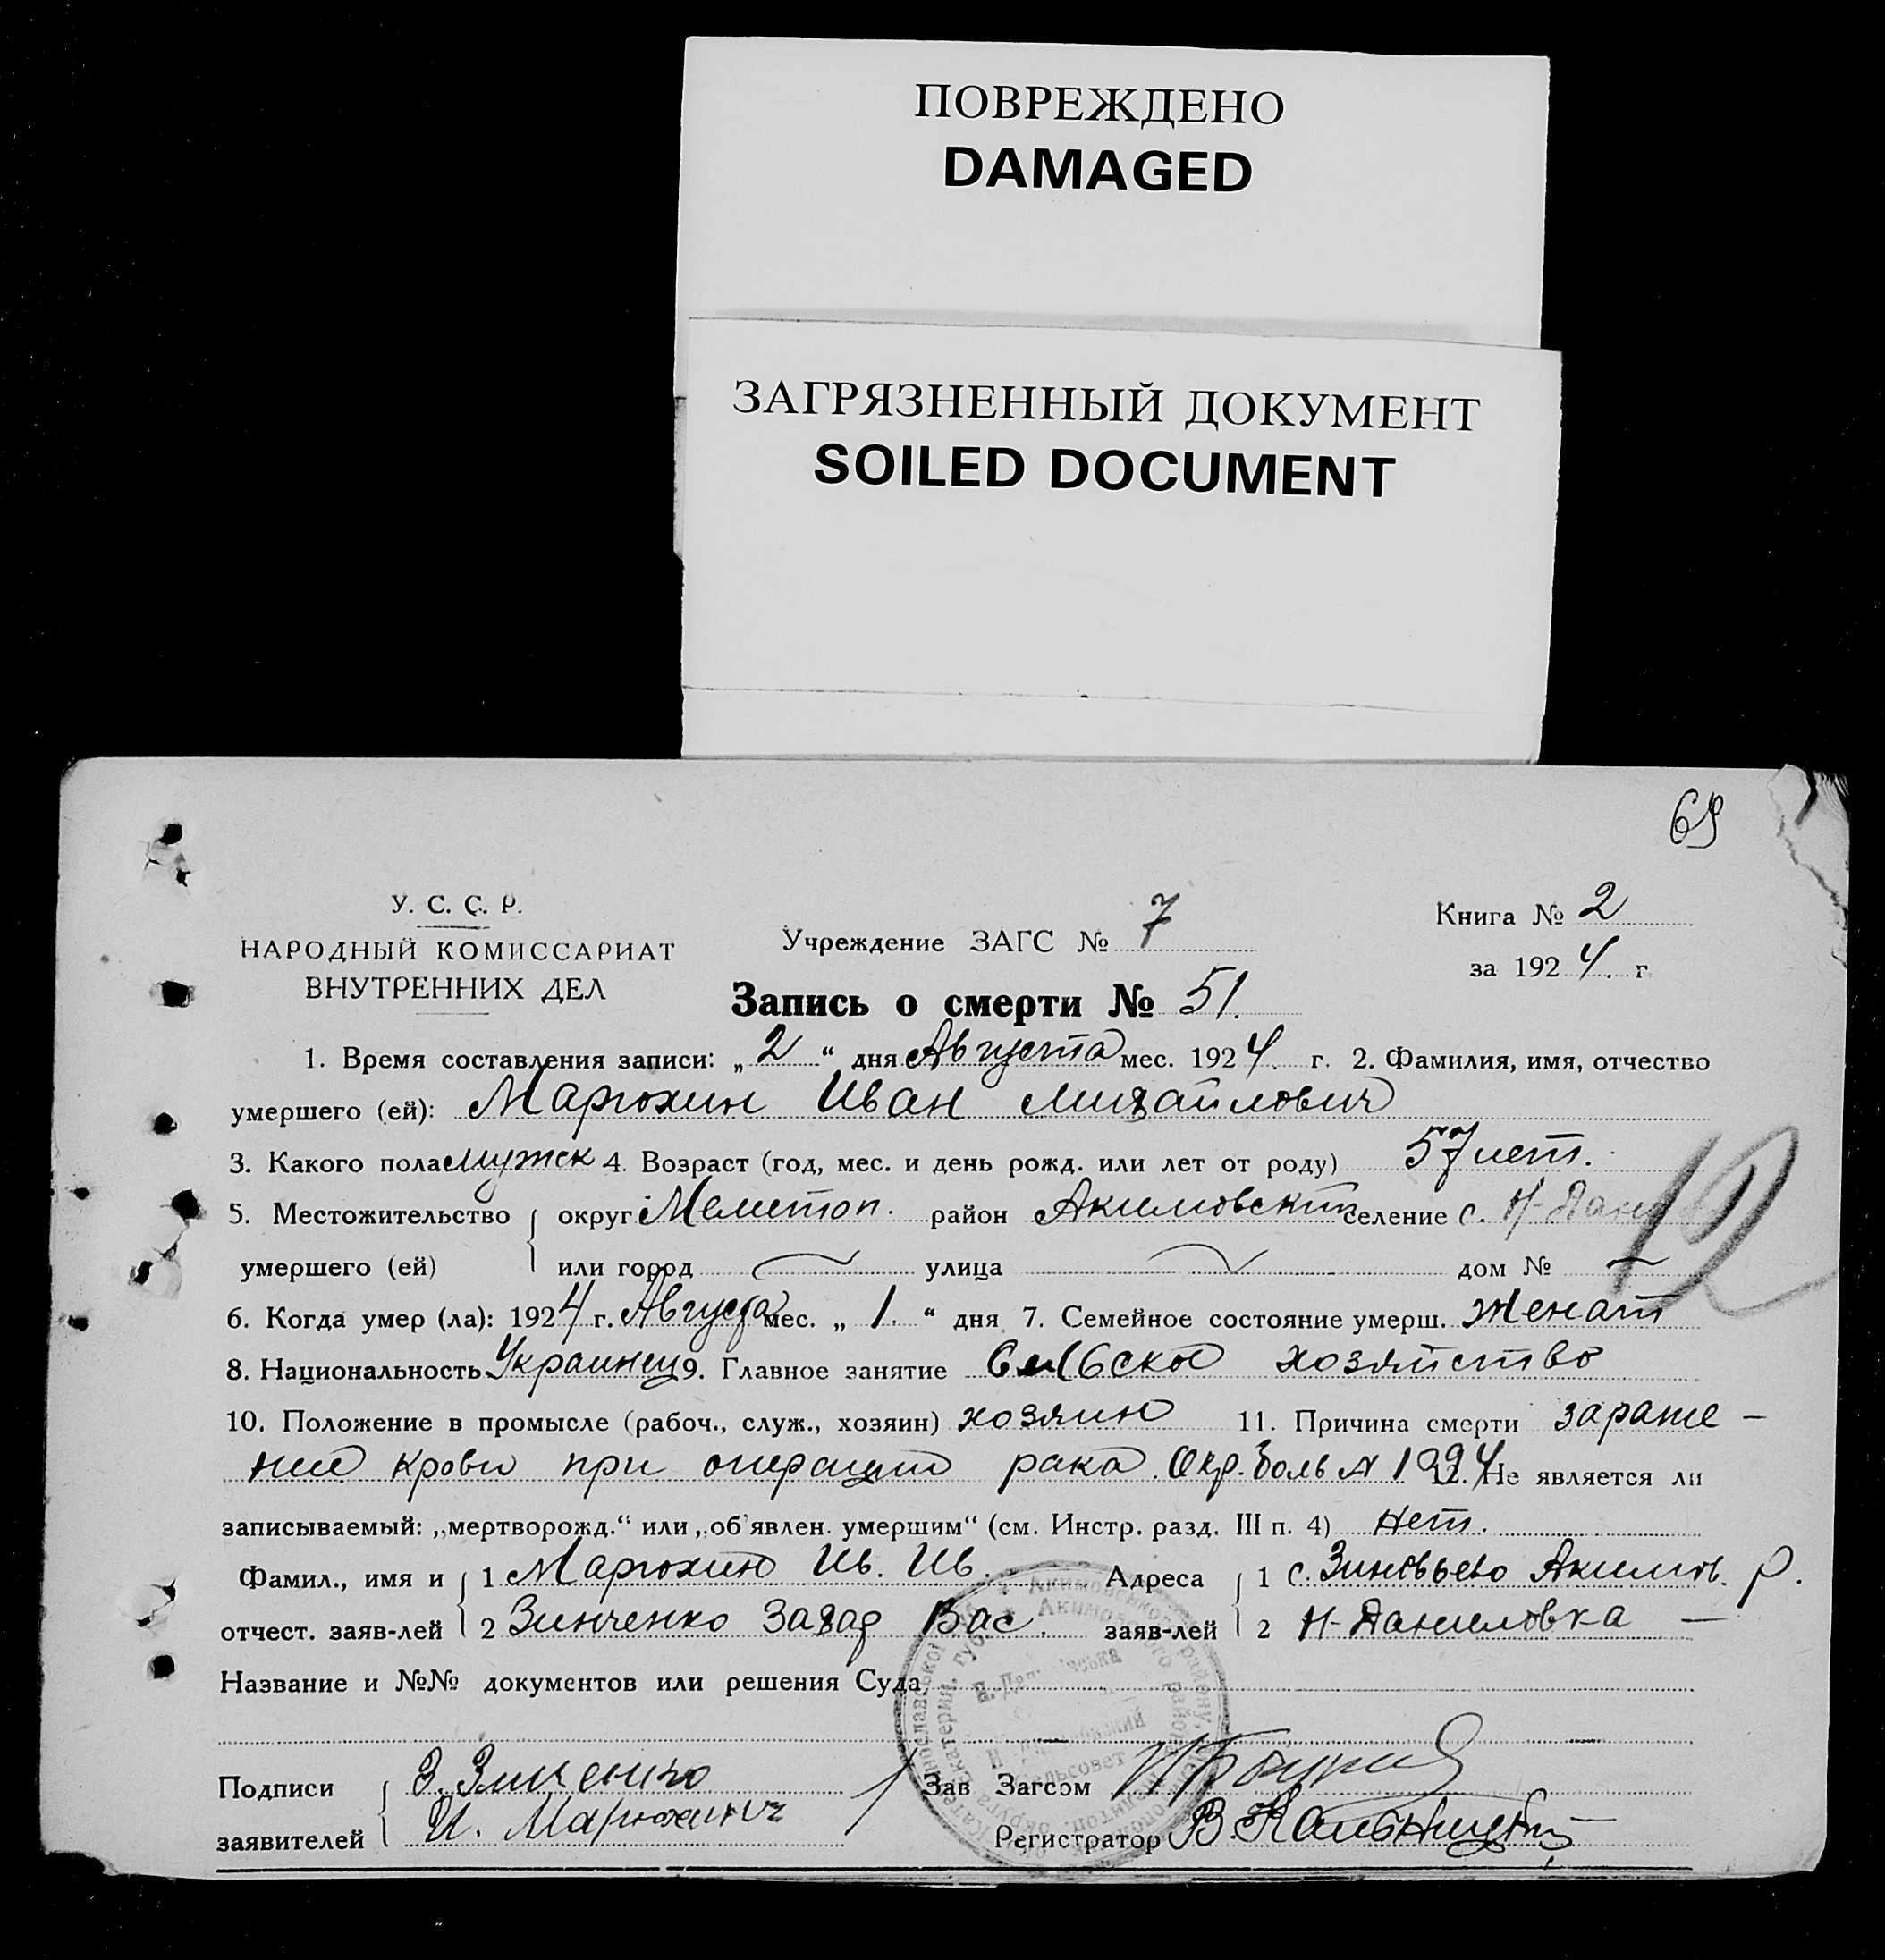 ПОВРЕЖДЕНО
DAMAGED
ЗАГРЯЗНЕННЫЙ ДОКУМЕНТ
SOILED DOCUMENT
69
У. С. С. Р.
НАРОДНЫЙ КОМИССАРИАТ
ВНУТРЕННИХ ДЕЛ
Учреждение ЗАГС № 7
Книга № 2
за 1924. г
Запись о смерти № 51.
1. Время составления записи: „2“ дня Августа мес. 1924. г. 2. Фамилия, имя, отчество
умершего (ей): Марюхин Иван Михайлович
3. Какого пола мужск 4. Возраст (год, мес. и день рожд. или лет от роду) 57 лет.
5. Местожительство округ Мелитоп. район Акимовский селение с. Н-Дани
12
умершего (ей) или город — улица — дом № —
6. Когда умер (ла): 1924 г. Августа мес. „1.“ дня 7. Семейное состояние умерш. Женат
8. Национальность Украинец 9. Главное занятие Сельское хозяйство
10. Положение в промысле (рабоч., служ., хозяин) хозяин 11. Причина смерти зараже-
ние крови при операции рака. Окр. боль № 1994 12. Не является ли
записываемый: „мертворожд.“ или „об'явлен. умершим“ (см. Инстр. разд. III п. 4) нет.
Фамил., имя и 1 Марюхин Ив. Ив. Адреса 1 с. Зиновьево Акимов. р.
отчест. заяв-лей 2 Зинченко Захар Вас. заяв-лей 2 Н-Даниловка —
Название и №№ документов или решения Суда
Подписи З. Зинченко Зав Загсом
заявителей И. Марюхин Регистратор В. Кальницкий
Сельсовет